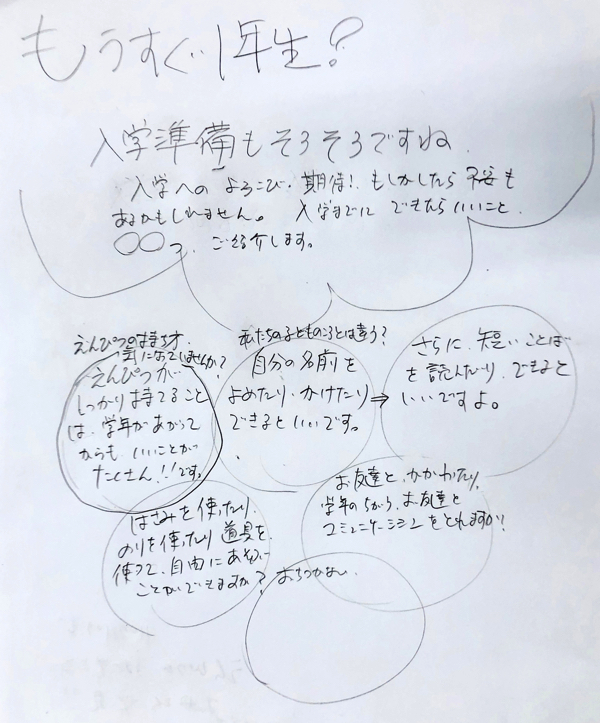 もうすぐ1年生?
入学準備もそろそろですね.
入学へのよろこび・期待!もしかしたら不安も
あるかもしれません。入学までにできたらいいこと
○○つ ご紹介します。
えんぴつの持ち方.
気になっていませんか?
えんぴつが
しっかり持てること
は、学年があがって
からも、いいことが
たくさん!!です。
私たちの子どものころとは違う?
自分の名前を
よめたり、かけたり
できるといいです。
⇒
さらに、短いことば
を読んだり、できると
いいですよ。
はさみを使ったり
のりを使ったり道具を
使って、自由にあそぶ
ことができますか?
お友達と、かかわったり、
学年のちがう、お友達と
コミュニケーションをとれますか?
おちつかない